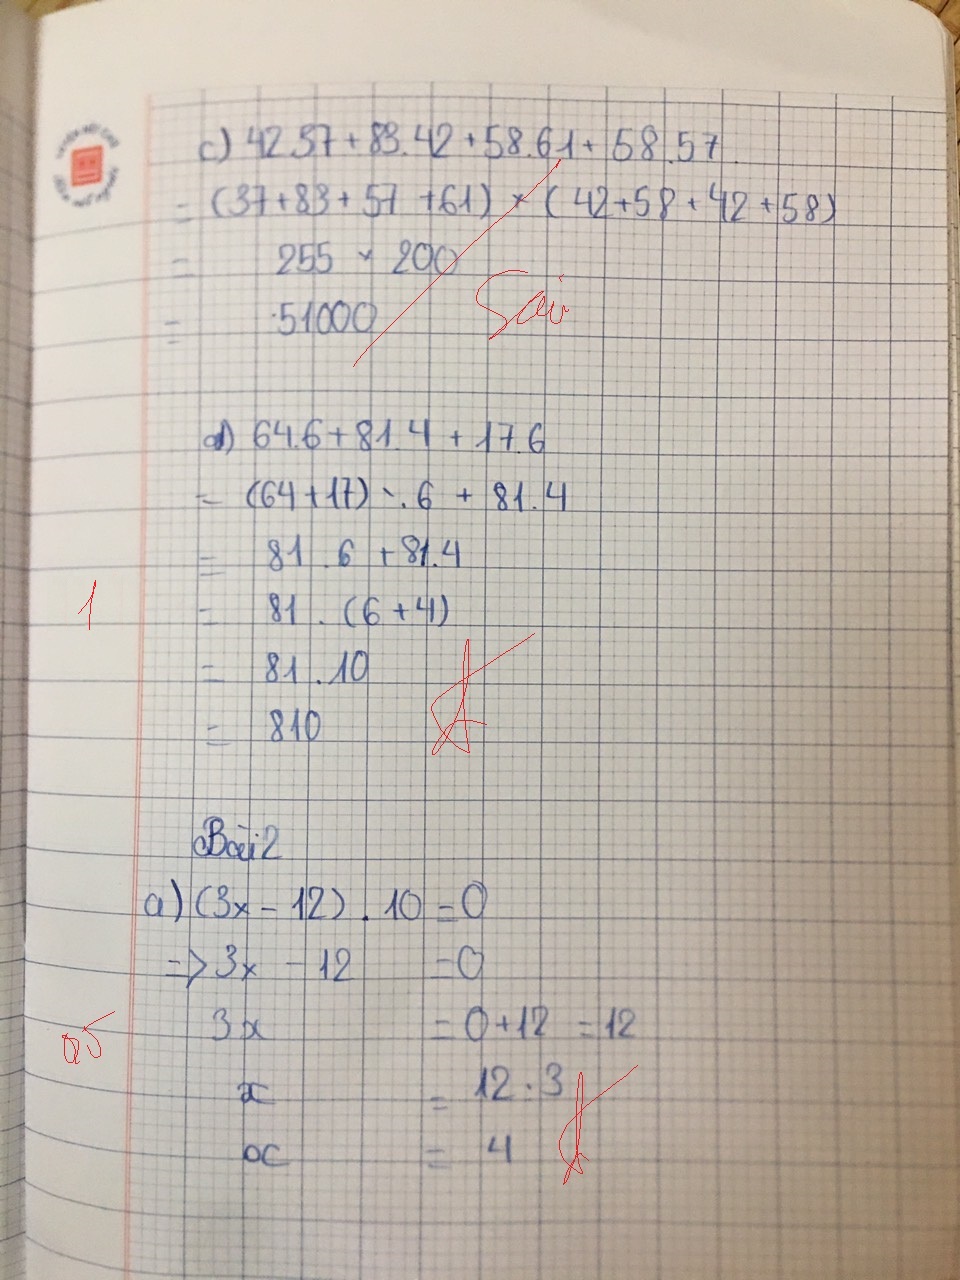 c) 42.37 + 83.42 + 58.61 + 58.57
= (37+83+57+61) × (42+58+42+58)
= 255 × 200
= 51000
Sai
d) 64.6 + 81.4 + 17.6
= (64+17) . 6 + 81.4
= 81 . 6 + 81.4
= 81 . (6+4)
1
= 81 . 10
= 810
Bài 2
a) (3x - 12) . 10 = 0
=> 3x - 12 = 0
3x = 0+12 = 12
0,5
x = 12 : 3
x = 4